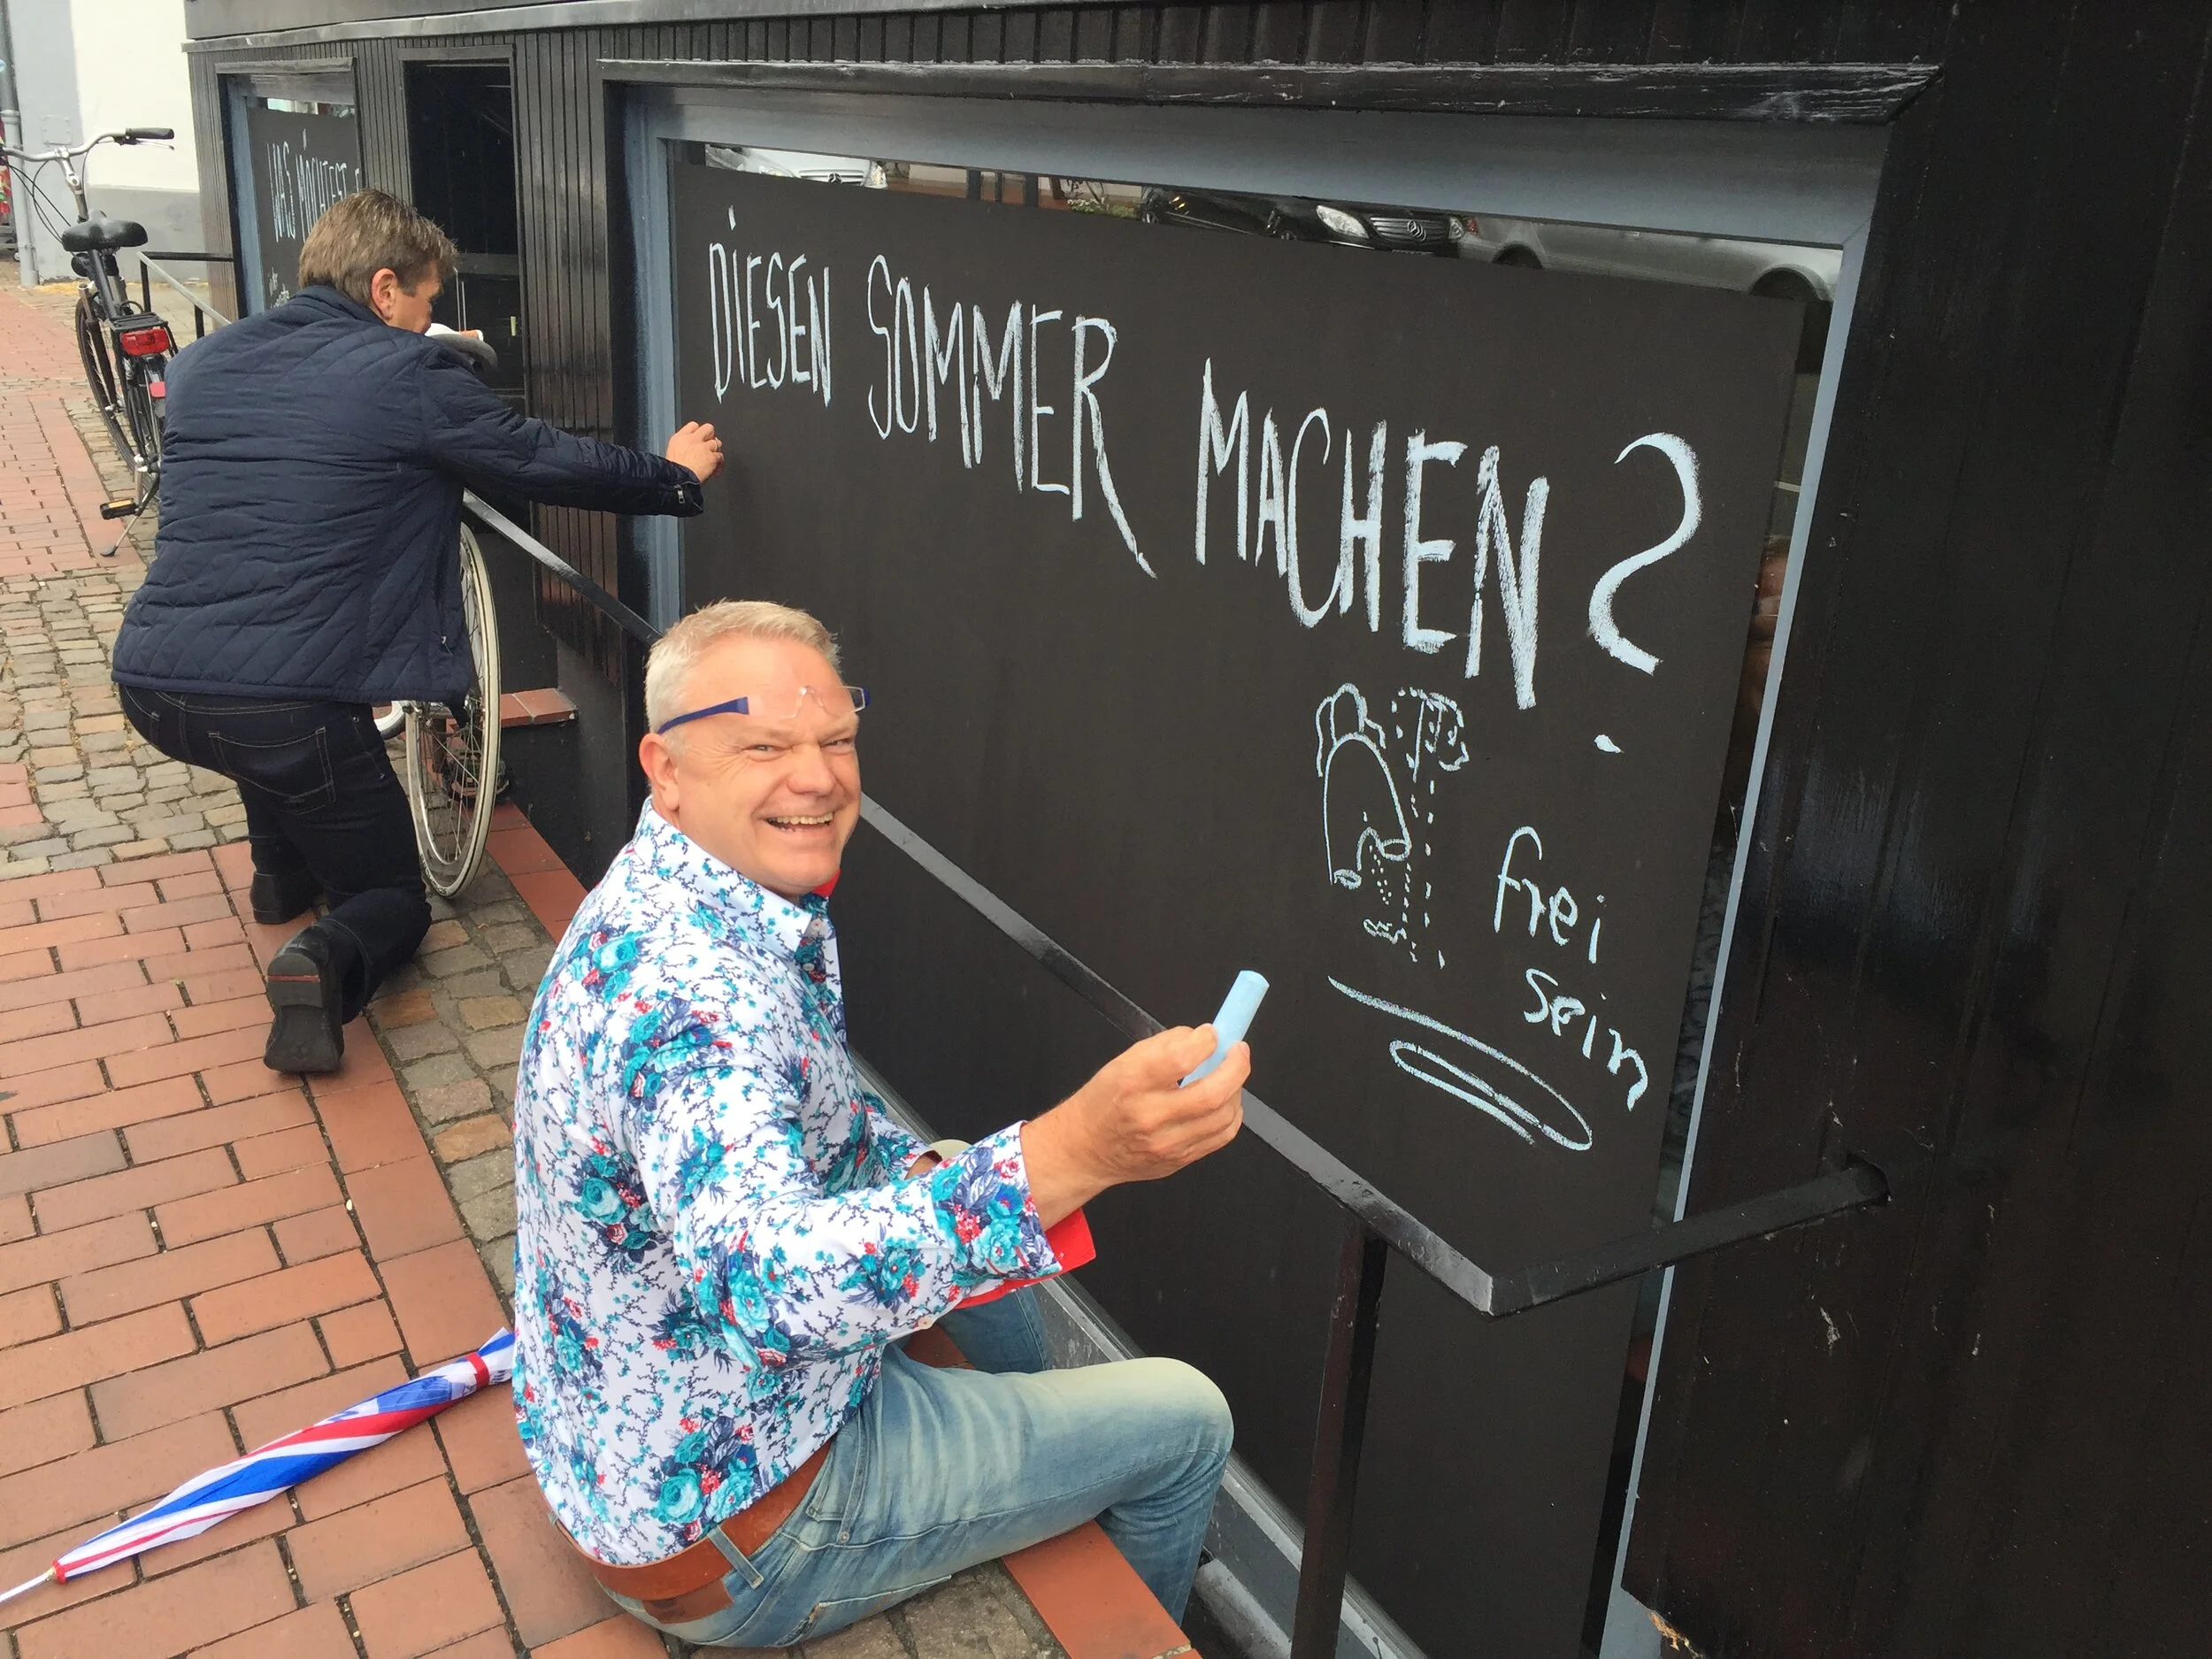 WAS MÖCHTEST
DIESEN SOMMER MACHEN?
frei
sein